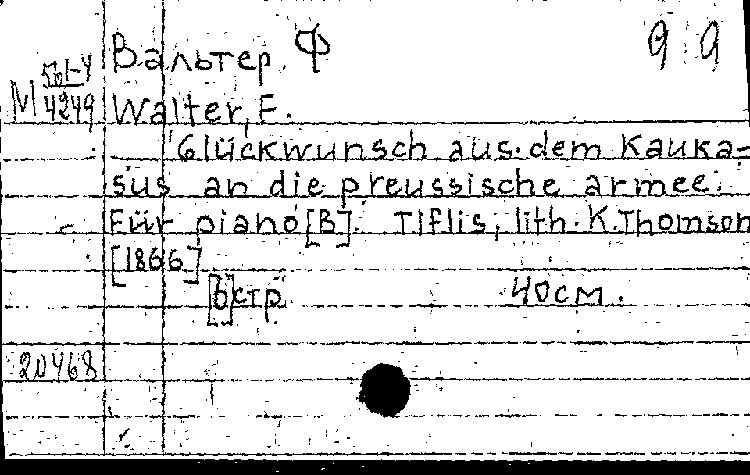 Вальтер, Ф 99
М 561-4
4249
Walter, F.
Glückwunsch aus dem Kauka=
sus an die preussische armee.
Für piano [B]. Tiflis, lith. K. Thomson
[1866]
[6] стр 40 см.
20468